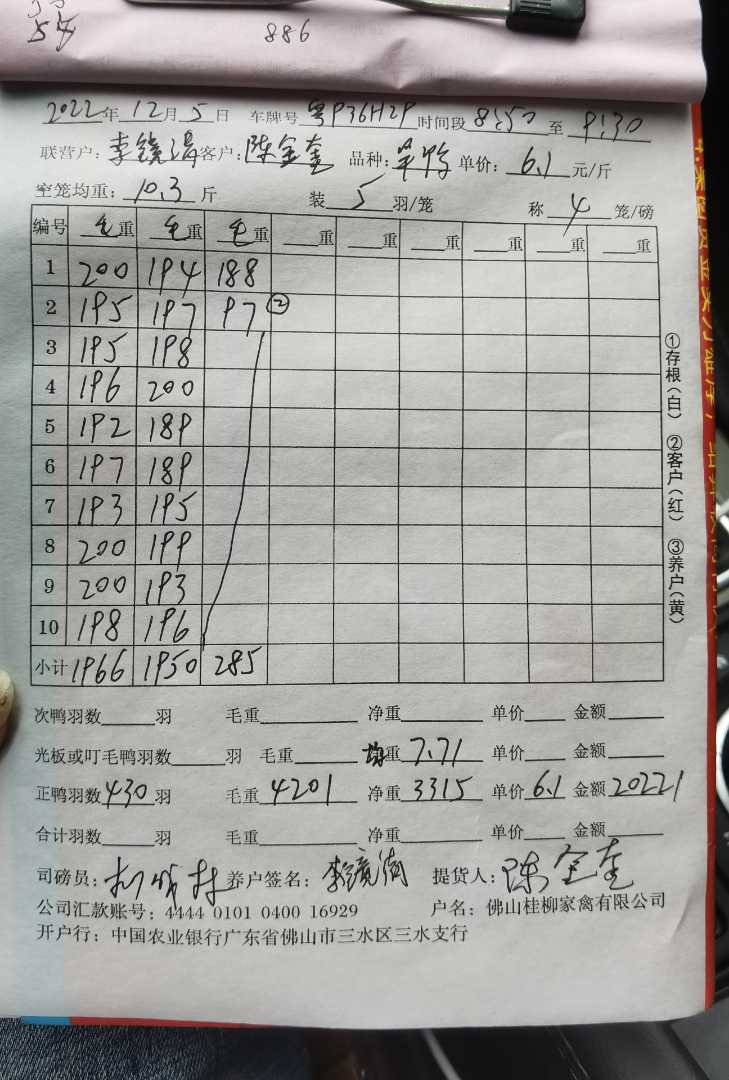 886
2022年12月5日 车牌号 粤P36H29 时间段 8:50 至 9:30
联营户: 李镜满 客户: 陈金奎 品种: 单价: 6.1 元/斤
空笼均重: 10.3 斤 装 5 羽/笼 称 4 笼/磅
编号 毛重 毛重 毛重 重 重 重 重 重 重
1 200 194 188
2 195 197 97 ②
3 195 198
4 196 200
5 192 189
6 197 189
7 193 195
8 200 199
9 200 193
10 198 196
小计 1966 1950 285
①存根(白) ②客户(红) ③养户(黄)
次鸭羽数 羽 毛重 净重 单价 金额
光板或叮毛鸭羽数 羽 毛重 均重 7.71 单价 金额
正鸭羽数 430 羽 毛重 4201 净重 3315 单价 6.1 金额 20221
合计羽数 羽 毛重 净重 单价 金额
司磅员: 养户签名: 李镜满 提货人: 陈金奎
公司汇款账号: 4444 0101 0400 16929 户名: 佛山桂柳家禽有限公司
开户行: 中国农业银行广东省佛山市三水区三水支行